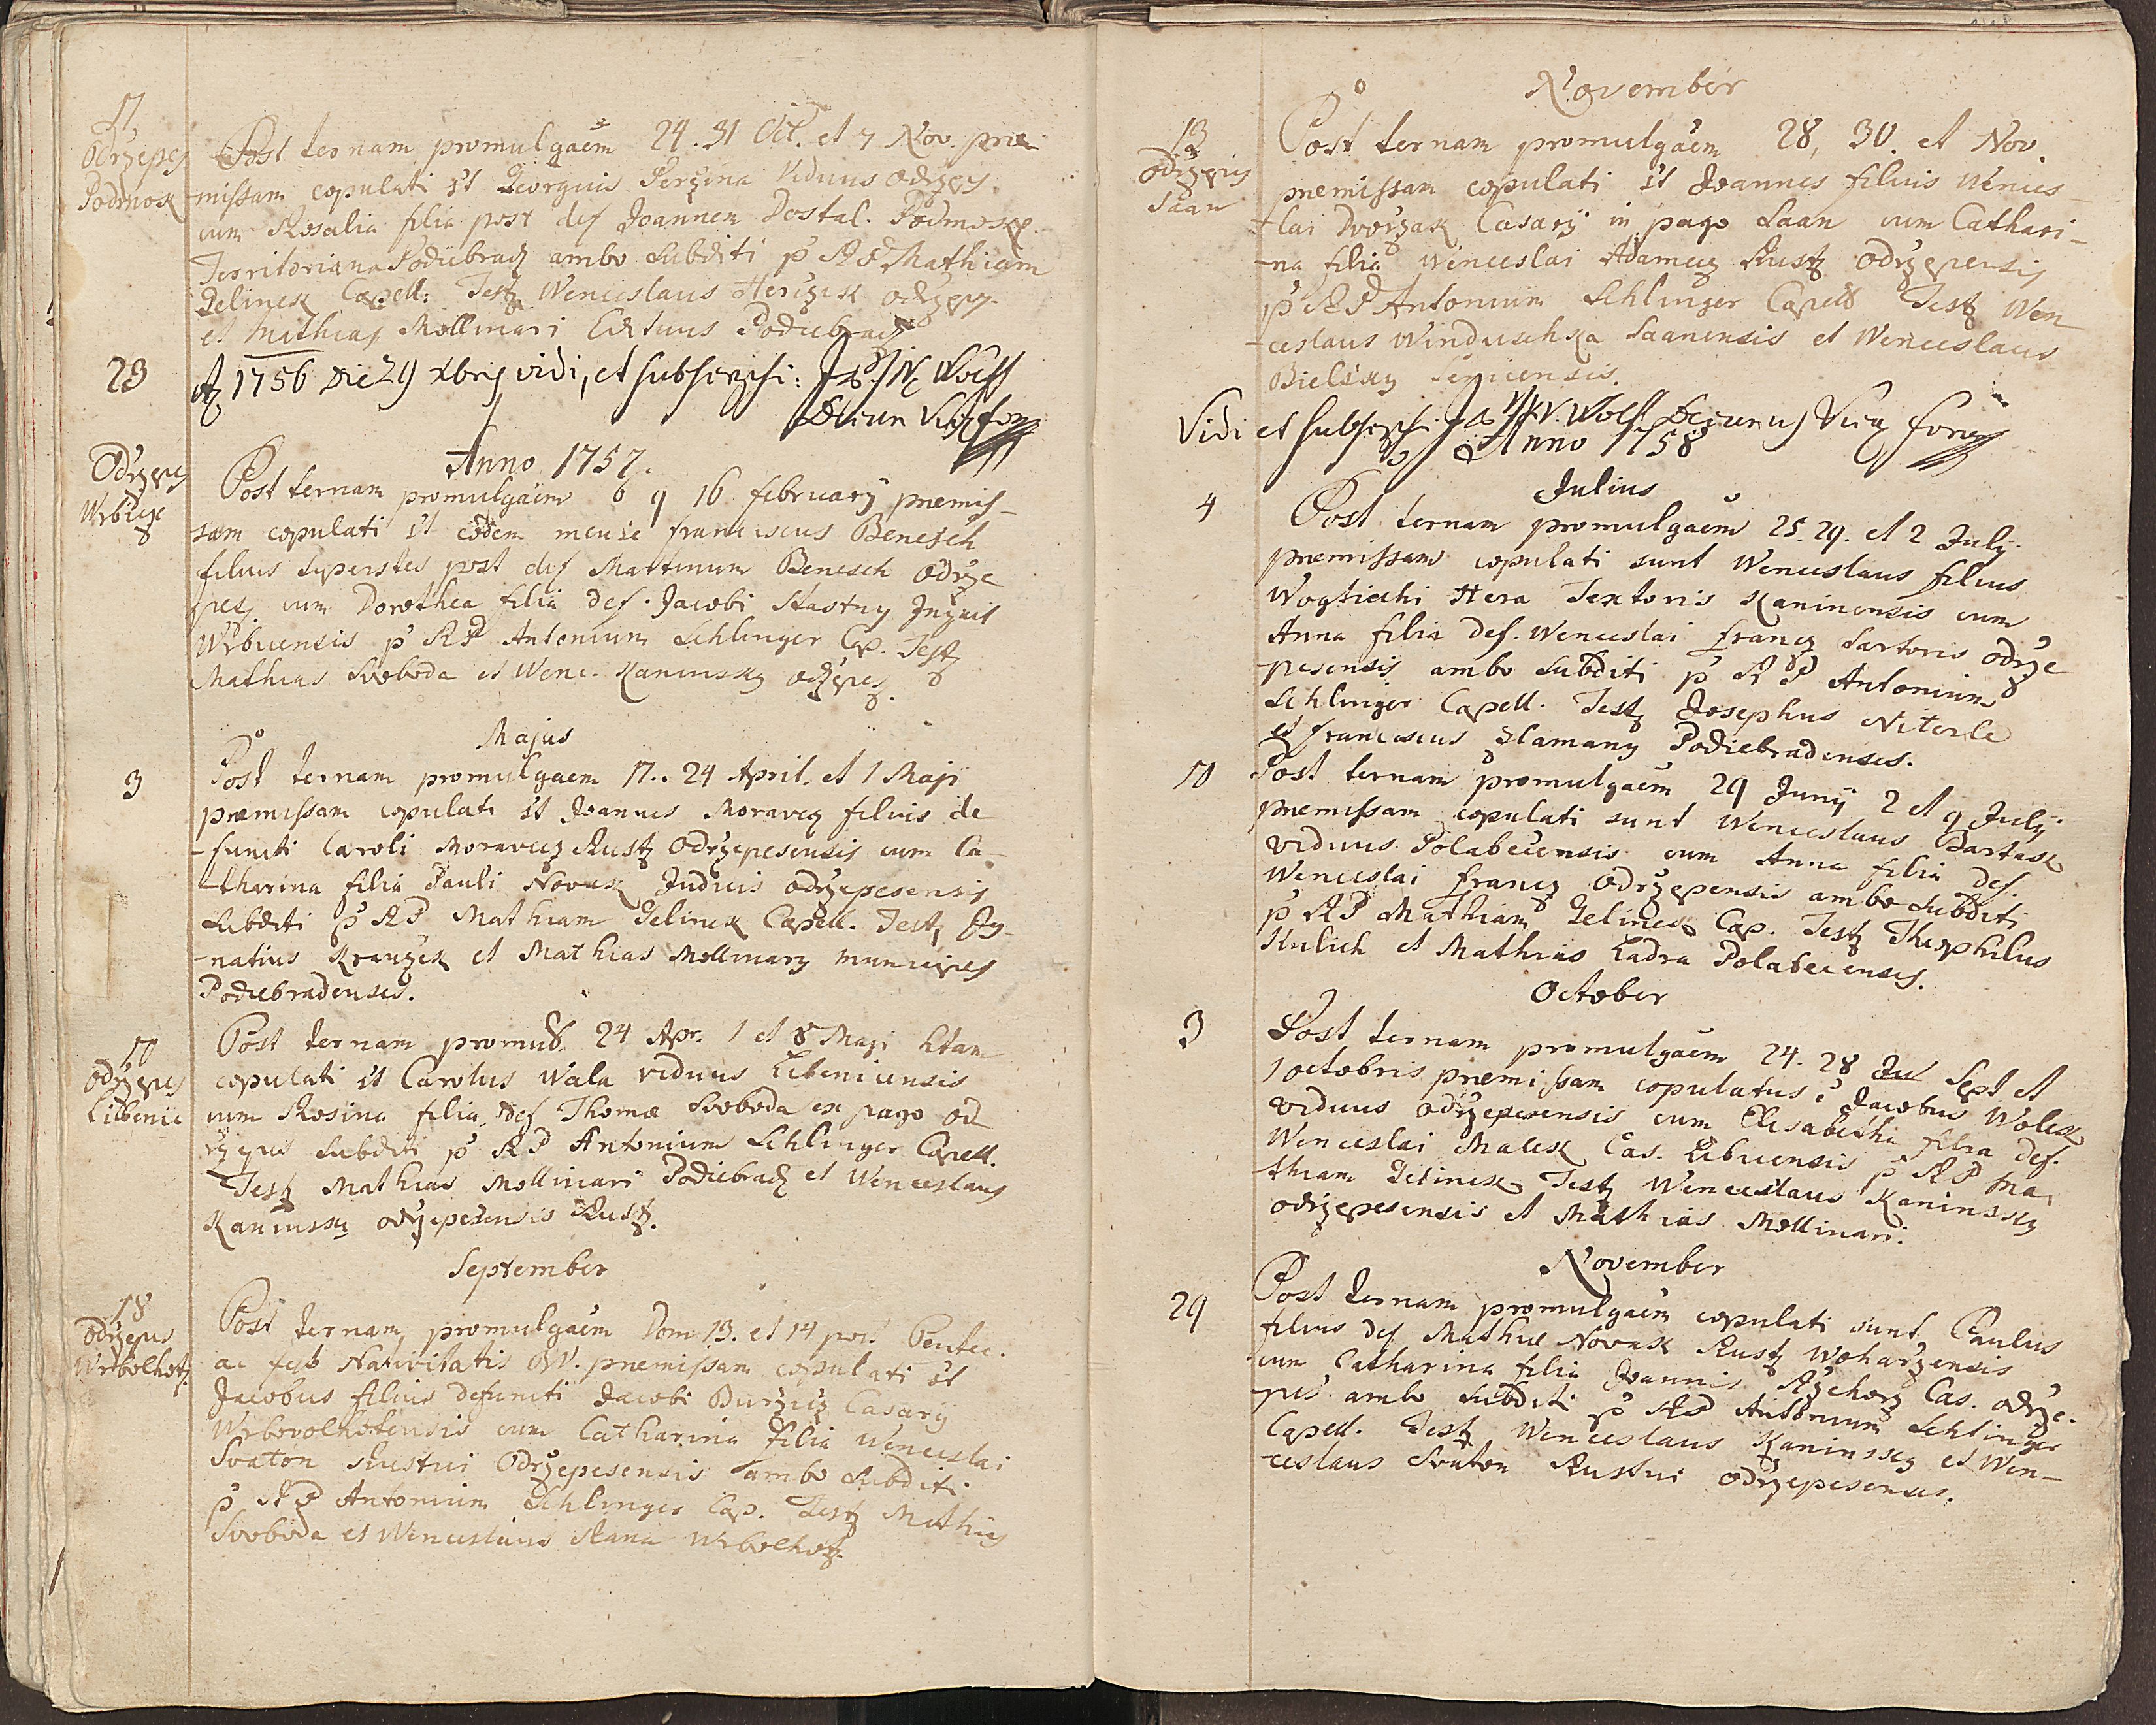 17
Odrzepes
Podmok
Post ternam promulgaem 24. 31 Oct. et 7 Nov. prae
-missam copulati st Georgius Perzina Viduus odrzeps.
cum Rosalia filia post def Joannem Dostal. Podmoky.
Territoriana Podiebrad ambo subditi p RP Mathiam
Gelinek Capell: Test Wenceslaus Herczik odrzeps
et Mathias Mollinari Podiebrad
23
A 1756 Die 29 xbris vidi, et subscripsi: Wolf
Decan Vic for
Odrzepes
Wrbicze
Anno 1757.
Post ternam promulgaem 6 9 16 february premis-
sam copulati st eodem mense franciscus Benesch
filius superstes post def Martinum Benesch Odrze
pes, cum Dorothea filia def. Jacobi Stastny Inquil
Wrbicensis p RP Antonium Schlinger Cp. Test
Mathias Svoboda et Wenc. Kaninsky odrzepes.
Majus
3
Post ternam promulgaem 17. 24 April. et 1 Maji
praemissam copulati st Joannes Moravez filius de
-functi Caroli Moravez Rust Odrzepesensis cum Ca
-tharina filia Pauli Novak Judicis odrzepesensis
subditi p RP Mathiam Gelinek Capell. Test, Ig-
-natius Krauzek et Mathias Mollinary municipes
Podiebradenses.
10
Odrzepes
Libenic
Post ternam promul. 24 Apr. 1 et 8 Maji
copulati st Carolus Wala viduus Libenicensis
cum Rosina filia def Thomae Svoboda ex pago Od
rzepes subditi p RP Antonium Schlinger Capell.
Test Mathias Mollinari Podiebrad et Wenceslaus
Kaninsky odrzepesensis Rust.
September
18
Odrzepes
Wrbolhot
Post ternam promulgaem Dom 13. et 14 post Pentec.
ac festo Nativitatis BV. premissam copulati st
Jacobus filius defuncti Jacobi Durziz Casary
Wrbovolhotensis cum Catharina filia Wenceslai
Svaton Rustici Odrzepesensis ambo subditi
p RP Antonium Schlinger Cap. Test Mathias
Svoboda et Wenceslaus Kana Wrbolhot.
November
13
Odrzepes
Saan
Post ternam promulgaem 28, 30. et Nov.
premissam copulati st Joannes filius Wences
-lai Dvorzak Casary in pago Saan cum Cathari-
-na filia Wenceslai Adamecz Rust Odrzepensis
p RP Antonium Schlinger Capell Test Wen
-ceslaus Winduschka Saanensis et Wenceslaus
Bielsky Senicensis.
Vidi et subscripsi Wolf Decanus Vic foran
Anno 1758
Julius
4
Post ternam promulgaem 25. 29. et 2 July
premissam copulati sunt Wenceslaus filius
Wogtiechi Hera Textoris Kaninensis cum
Anna filia def. Wenceslai francz Sartoris Odrze
pesensis ambo subditi p RP Antonium
Schlinger Capell. Test Josephus Niterle
et franciscus Slamany Podiebradenses.
10
Post ternam promulgaem 29 Juny 2 et 9 July
premissam copulati sunt Wenceslaus Bartak
viduus Polabecensis cum Anna filia def.
Wenceslai francz Odrzepensis ambo subditi
p RP Mathiam Gelinek Cap. Test Theophilus
Kulich et Mathias Ladra Polabecensis.
October
3
Post ternam promulgaem 24. 28 Sept. et
1 octobris premissam copulatus e Jacobus Wolek
viduus Odrzepesensis cum Elisabetha filia def.
Wenceslai Malek Cas. Libicensis p RP Ma
thiam Gelinek Test Wenceslaus Kaninsky
odrzepesensis et Mathias Mollinari.
November
29
Post ternam promulgaem copulati sunt Paulus
filius def Mathiae Novak Rust Woharzensis
cum Catharina filia Joannis Rzehorz Cas. odrze-
-pes. ambo subditi p RP Antonium Schlinger
Capell. Test Wenceslaus Kaninsky et Wen-
-ceslaus Svaton Rustici Odrzepesenses.